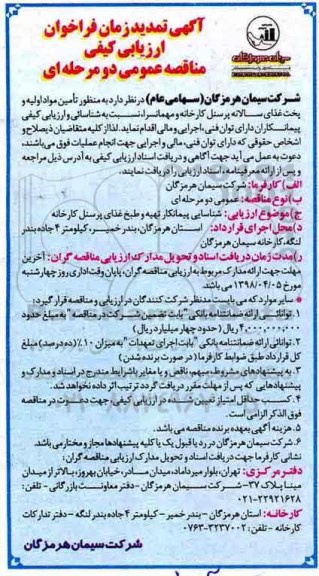 آگهی تمدید زمان فراخوان
ارزیابی کیفی
مناقصه عمومی دو مرحله ای
شرکت سیمان هرمزگان (سهامی عام) در نظر دارد به منظور تأمین مواد اولیه و
پخت غذای سالانه پرسنل کارخانه و مهمانسرا، نسبت به شناسائی و ارزیابی کیفی
پیمانکاران دارای توان فنی، اجرایی و مالی اقدام نماید. لذا از کلیه متقاضیان ذیصلاح و
اشخاص حقوقی که دارای توان فنی، مالی و اجرایی جهت انجام عملیات فوق می باشند،
دعوت به عمل می آید جهت آگاهی و دریافت اسناد ارزیابی کیفی به آدرس ذیل مراجعه
و پس از ارائه معرفینامه، اسناد ارزیابی را دریافت نمایند.
الف) کارفرما: شرکت سیمان هرمزگان
ب) نوع مناقصه: عمومی دو مرحله ای
ج) موضوع ارزیابی: شناسایی پیمانکار تهیه و طبخ غذای پرسنل کارخانه
د) محل اجرای قرارداد: استان هرمزگان، بندر خمیر، کیلومتر ۴ جاده بندر
لنگه، کارخانه سیمان هرمزگان
ر) مدت زمان دریافت اسناد و تحویل مدارک ارزیابی مناقصه گران: آخرین
مهلت جهت ارائه مدارک مربوط به ارزیابی مناقصه گران، پایان وقت اداری روز چهارشنبه
مورخ ۱۳۹۸/۰۴/۰۵ می باشد.
سایر موارد که می بایست مدنظر شرکت کنندگان در ارزیابی و مناقصه قرار گیرد:
۱. توانائی ارائه ضمانتنامه بانکی "بابت تضمین شرکت در مناقصه" به مبلغ حدود
۴,۰۰۰,۰۰۰,۰۰۰ ریال (حدود چهار میلیارد ریال)
۲. توانائی ارائه ضمانتنامه بانکی "بابت اجرای تعهدات" به میزان ۱۰٪ (ده درصد) مبلغ
کل قرارداد طبق ضوابط کارفرما (در صورت برنده شدن)
۳. به پیشنهادهای مشروط، مبهم، ناقص و یا مغایر با شرایط مندرج در اسناد و مدارک و
پیشنهادهایی که پس از مهلت مقرر دریافت گردد ترتیب اثر داده نخواهد شد.
۴. کسب حداقل امتیاز تعیین شده در ارزیابی کیفی، جهت دعوت در مناقصه
فوق الذکر الزامی است.
۵. هزینه آگهی بعهده برنده مناقصه می باشد.
۶. شرکت سیمان هرمزگان در رد یا قبول یک یا کلیه پیشنهادها مجاز و مختار می باشد.
نشانی کارفرما جهت دریافت اسناد و تحویل مدارک ارزیابی مناقصه گران:
دفتر مرکزی: تهران، بلوار میرداماد، میدان مادر، خیابان بهروز، بالاتر از میدان
مینا پلاک ۳۷- شرکت سیمان هرمزگان - دفتر معاونت بازرگانی - تلفن:
۰۲۱-۲۲۹۲۱۶۲۸
کارخانه: استان هرمزگان - بندر خمیر - کیلومتر ۴ جاده بندر لنگه - دفتر تدارکات
کارخانه - تلفن: ۰۷۶۳-۳۲۳۷۰۰۲
شرکت سیمان هرمزگان